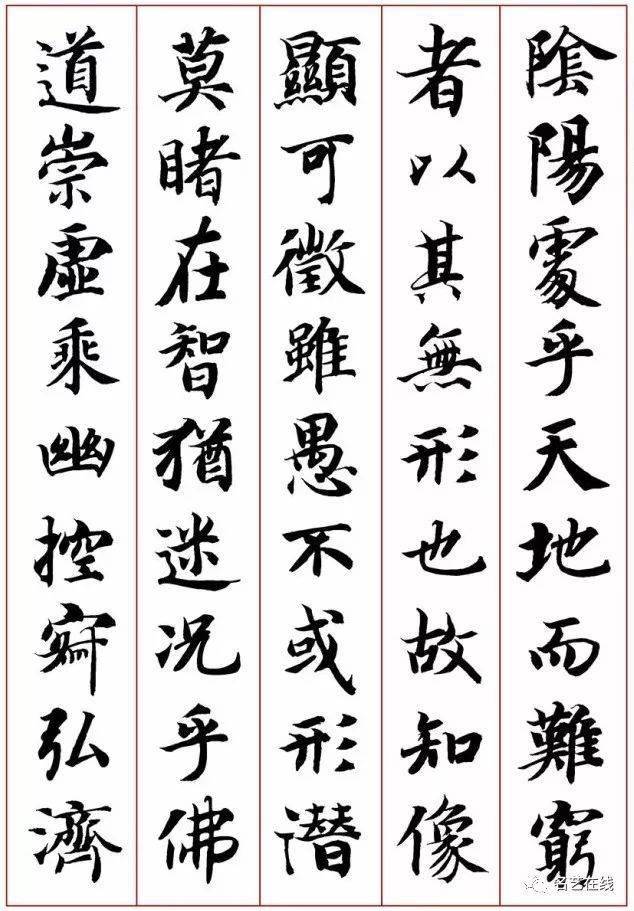 陰陽處乎天地而難窮
者以其無形也故知像
顯可徵雖愚不或形潛
莫睹在智猶迷况乎佛
道崇虛乘幽控寂弘濟
名艺在线